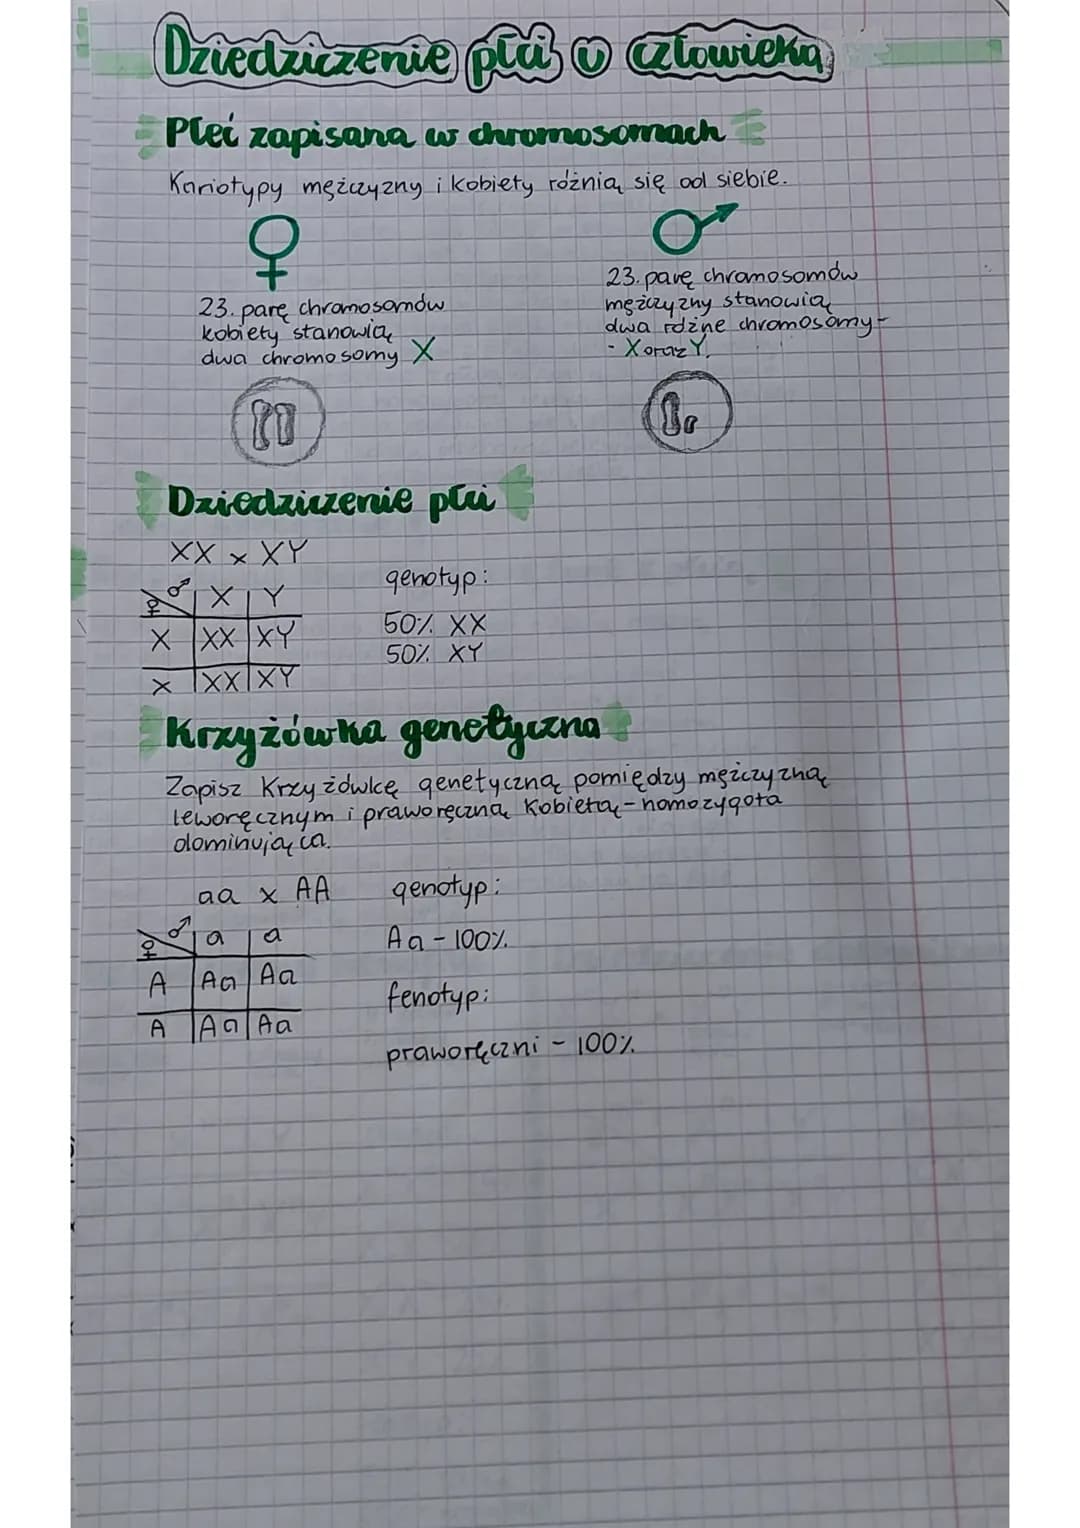 Dziedziczenie płci u człowieka
Płeć zapisana w chromosomach
Kariotypy mężczyzny i kobiety różnią się od siebie.
♀ ♂
23. parę chromosomów
kobiety stanowią
dwa chromosomy X
23. parę chromosomów
mężczyzny stanowią
dwa różne chromosomy -
- X oraz Y.
Dziedziczenie płci
XX x XY
♀ ♂ X Y
X XX XY
X XX XY
genotyp:
50% XX
50% XY
Krzyżówka genetyczna
Zapisz Krzyżówkę genetyczną pomiędzy mężczyzną
leworęcznym i praworęczną kobietą - homozygota
dominująca.
aa x AA
♀ ♂ a a
A Aa Aa
A Aa Aa
genotyp:
Aa - 100%.
fenotyp:
praworęczni - 100%.